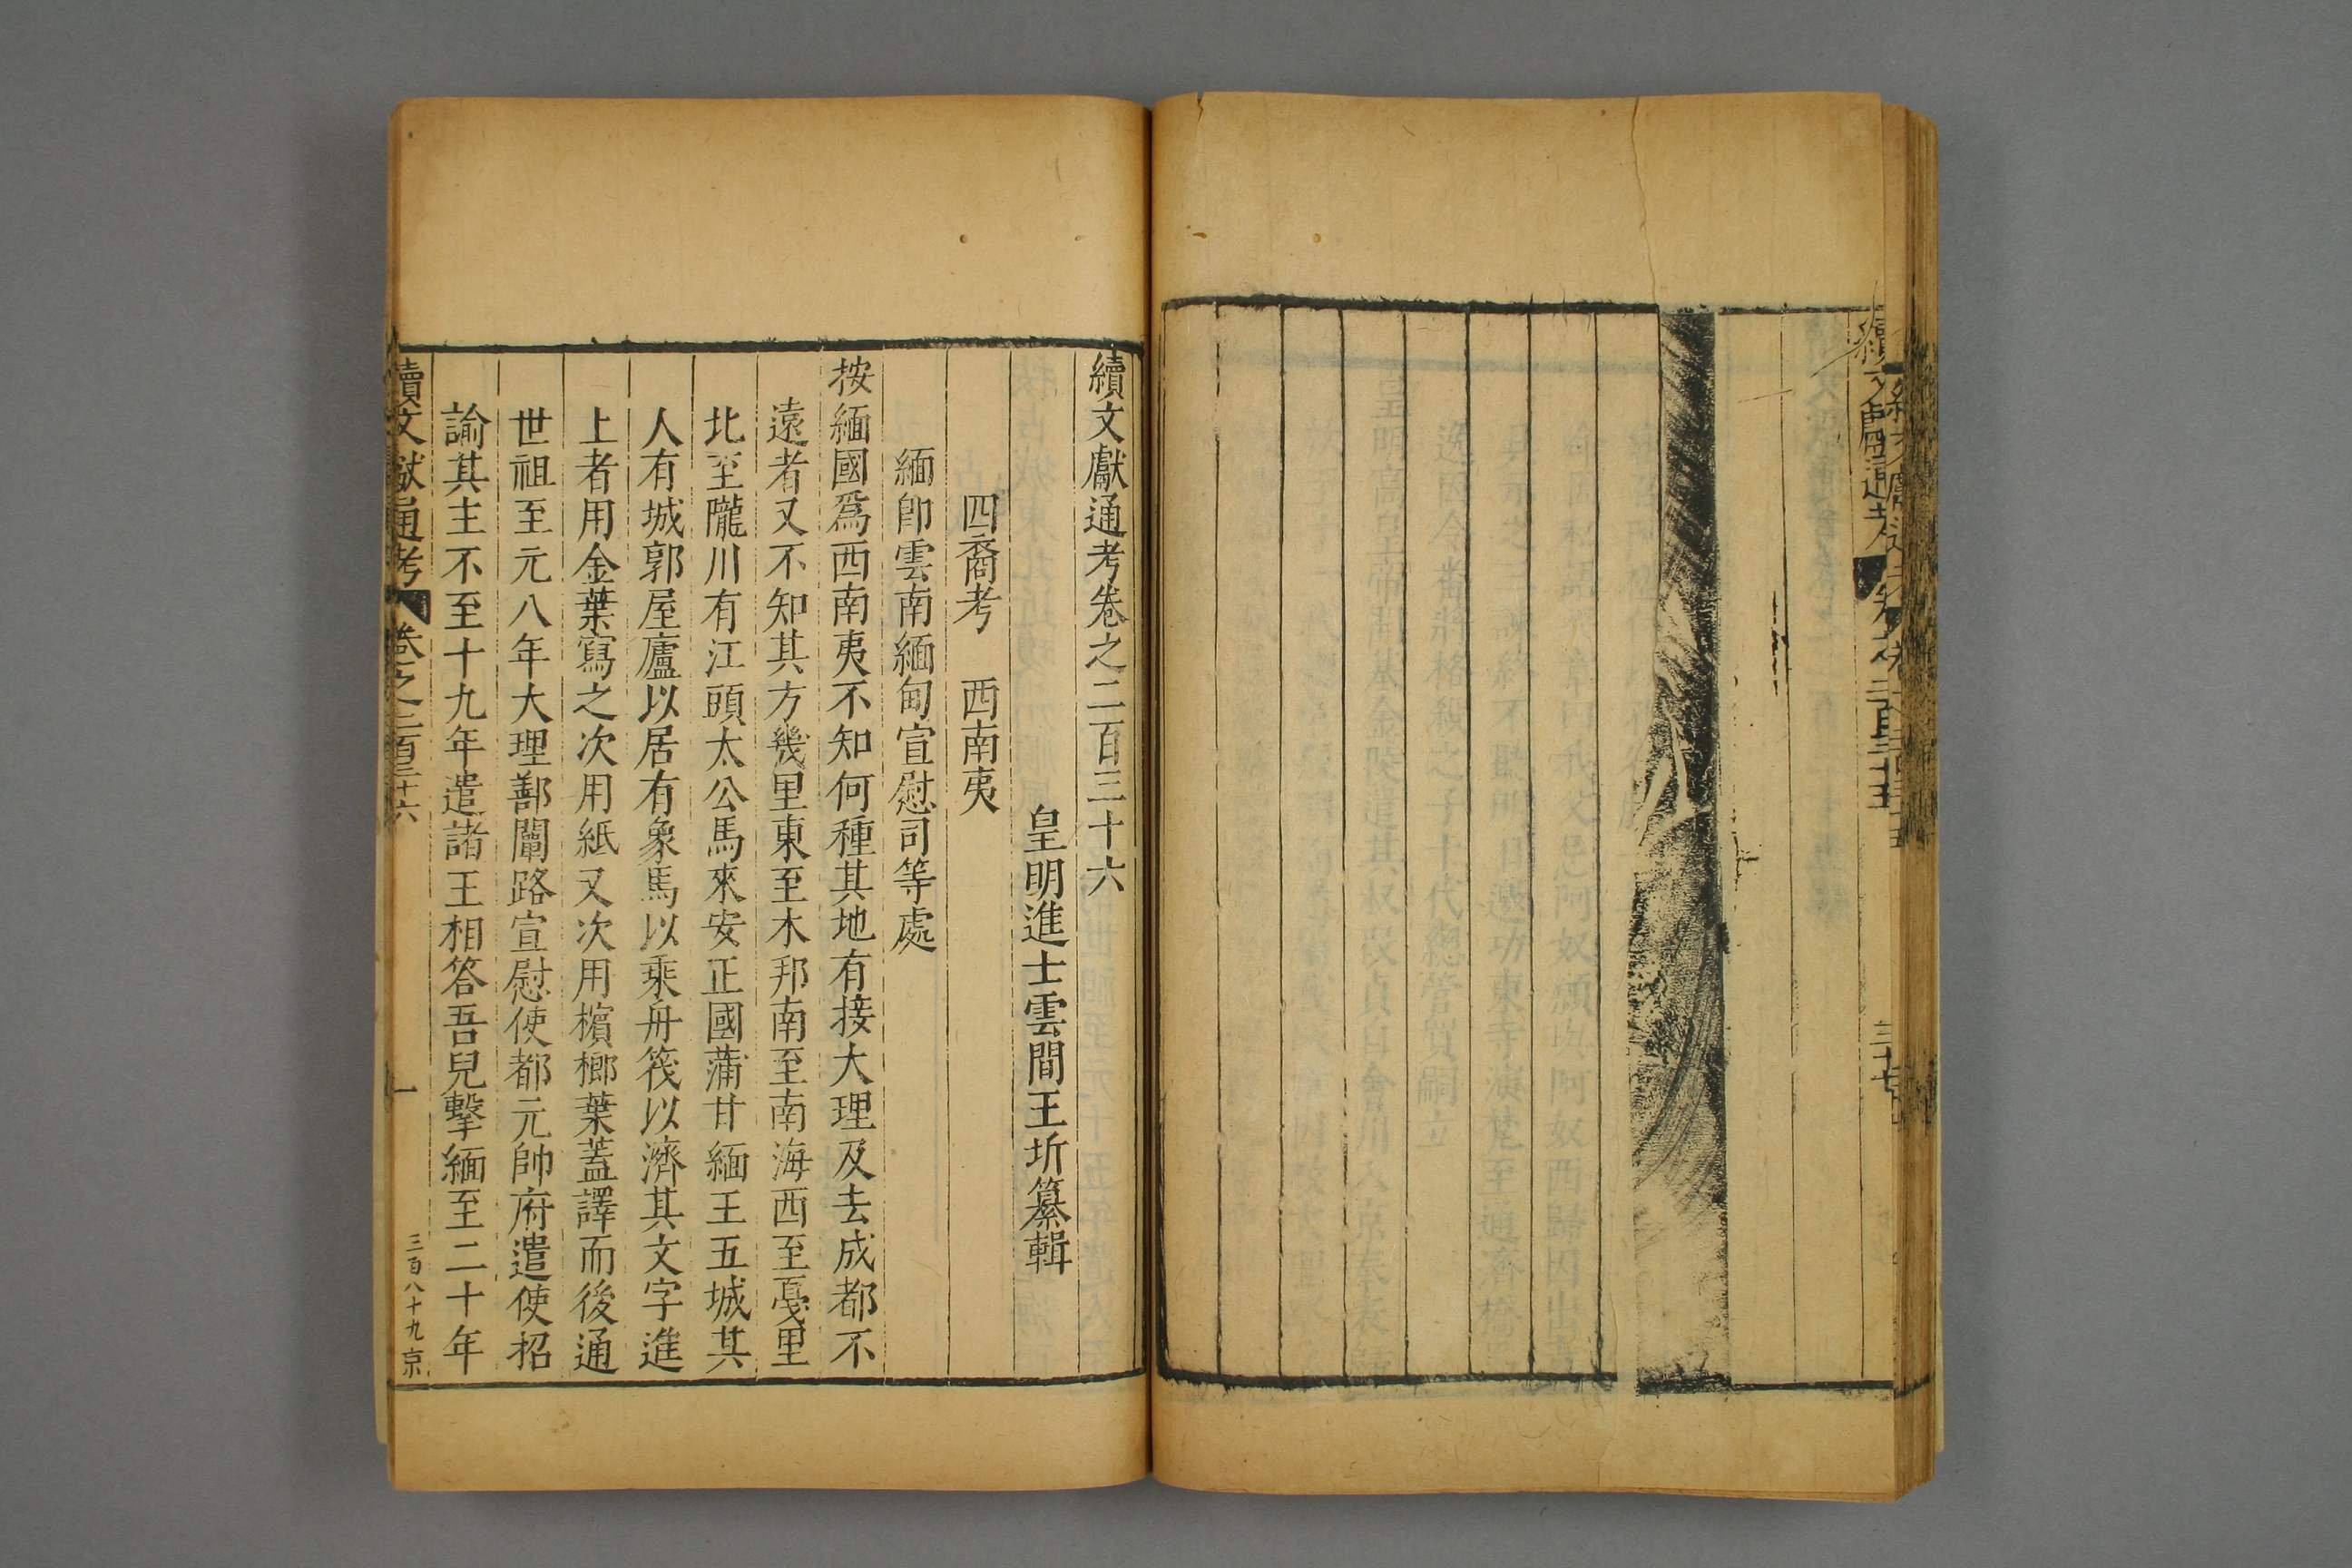 續文獻通考卷之二百三十六
皇明進士雲間王圻纂輯
四裔考　西南夷
緬卽雲南緬甸宣慰司等處
按緬國爲西南夷不知何種其地有接大理及去成都不
遠者又不知其方幾里東至木邦南至南海西至戞里
北至隴川有江頭太公馬來安正國蒲甘緬王五城其
人有城郭屋廬以居有象馬以乘舟筏以濟其文字進
上者用金葉寫之次用紙又次用檳榔葉蓋譯而後通
世祖至元八年大理鄯闡路宣慰使都元帥府遣使招
諭其主不至十九年遣諸王相答吾兒擊緬至二十年
續文獻通考
卷之二百三十六
一
三百八十九京
續文獻通考
卷之二百三十五
三十七